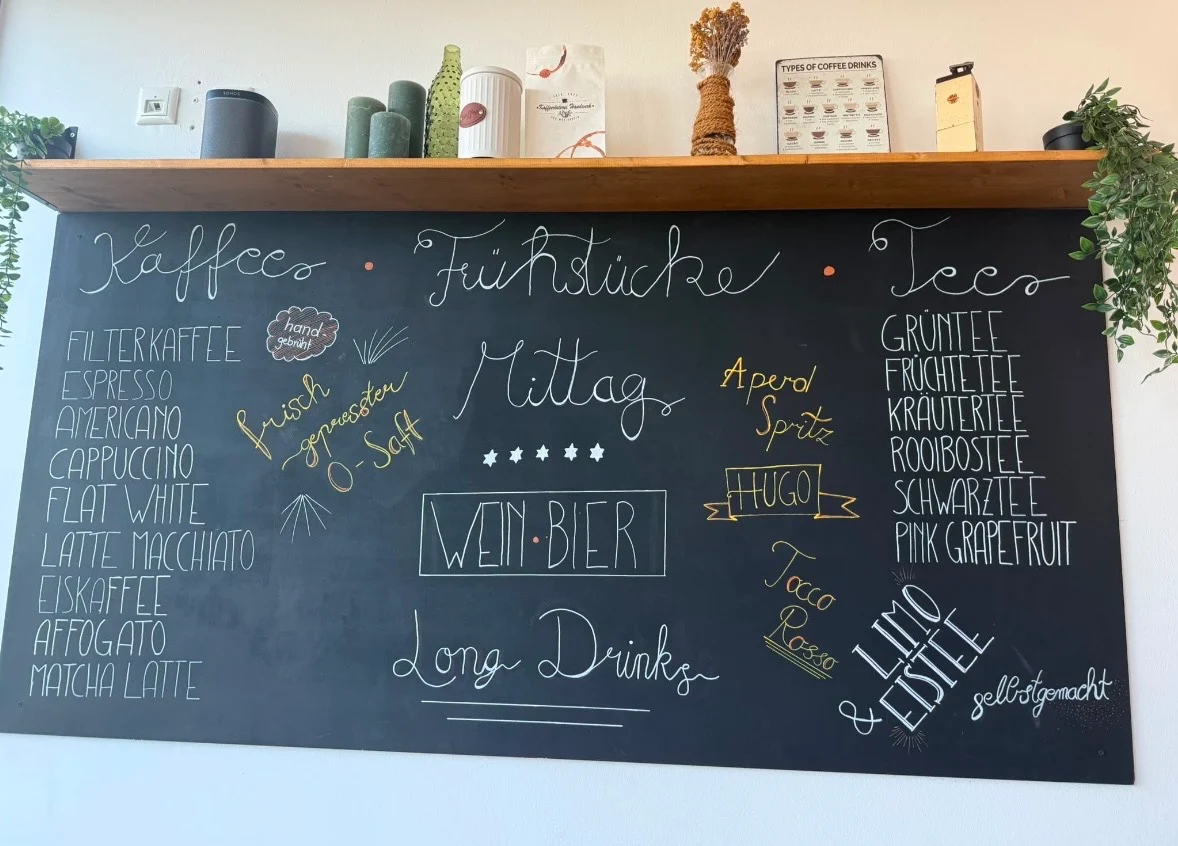 SONOS
Kaffeerösterei Handwerk
TYPES OF COFFEE DRINKS
Kaffees • Frühstücke • Tees
FILTERKAFFEE
hand-
gebrüht
ESPRESSO
AMERICANO
CAPPUCCINO
FLAT WHITE
LATTE MACCHIATO
EISKAFFEE
AFFOGATO
MATCHA LATTE
frisch
gepresster
O-Saft
Mittag
WEIN • BIER
Long Drinks
Aperol
Spritz
HUGO
Tocco
Rosso
GRÜNTEE
FRÜCHTETEE
KRÄUTERTEE
ROOIBOSTEE
SCHWARZTEE
PINK GRAPEFRUIT
LIMO
& EISTEE
selbstgemacht